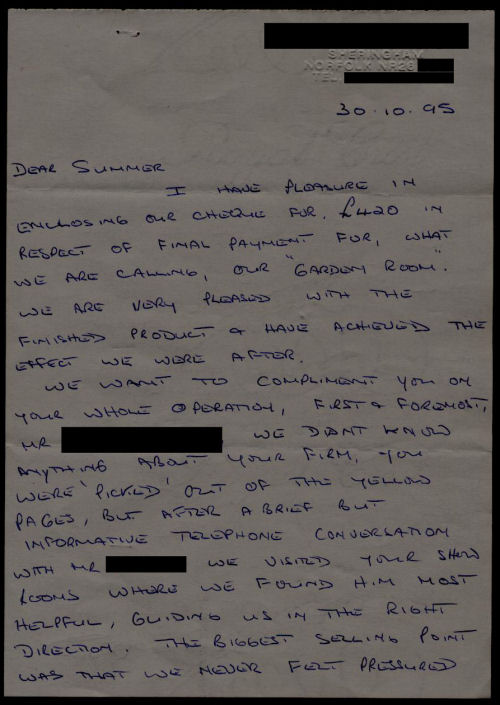 SHERINGHAM
NORFOLK NR26
TEL.
30.10.95
DEAR SUMMER
I HAVE PLEASURE IN
ENCLOSING OUR CHEQUE FOR, £420 IN
RESPECT OF FINAL PAYMENT FOR, WHAT
WE ARE CALLING, OUR "GARDEN ROOM".
WE ARE VERY PLEASED WITH THE
FINISHED PRODUCT & HAVE ACHIEVED THE
EFFECT WE WERE AFTER.
WE WANT TO COMPLIMENT YOU ON
YOUR WHOLE OPERATION, FIRST & FOREMOST,
MR WE DIDNT KNOW
ANYTHING ABOUT YOUR FIRM, YOU
WERE 'PICKED' OUT OF THE YELLOW
PAGES, BUT AFTER A BRIEF BUT
INFORMATIVE TELEPHONE CONVERSATION
WITH MR WE VISITED YOUR SHOW
ROOMS WHERE WE FOUND HIM MOST
HELPFUL, GUIDING US IN THE RIGHT
DIRECTION. THE BIGGEST SELLING POINT
WAS THAT WE NEVER FELT PRESSURED